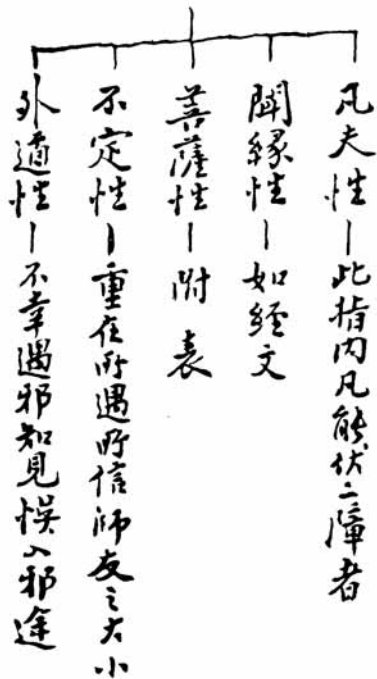 凡夫性—此指內凡能伏二障者
聞緣性—如經文
菩薩性—附表
不定性—重在所遇所信師友之大小
外道性—不幸遇邪知見悞入邪途